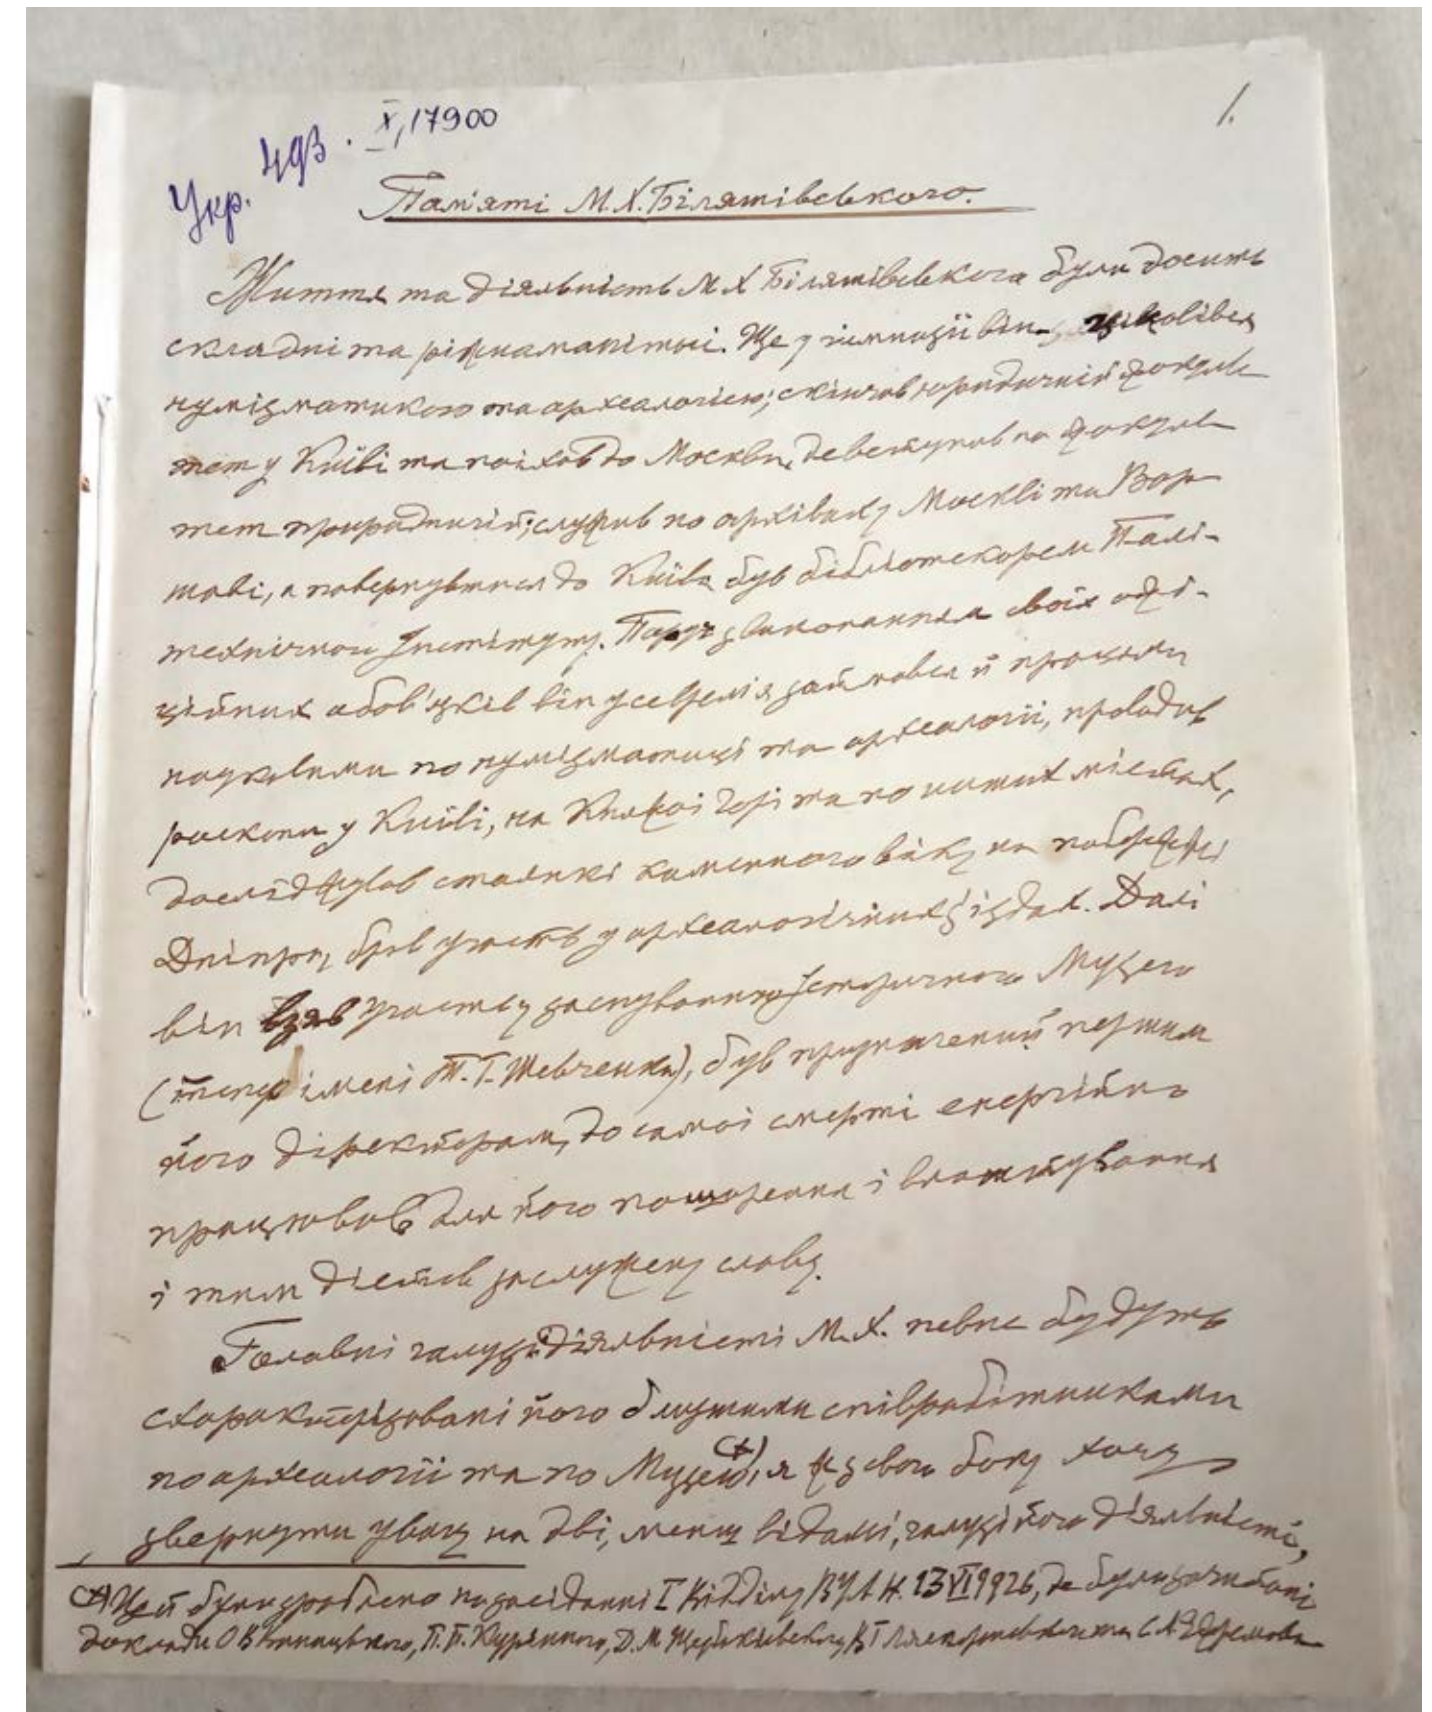 Укр. 493. X, 17900
1.
Пам'яті М.Х. Біляшівського.
Життя та діяльність М Х Біляшівського були досить
складні та різнаманітні. Ще у гімназії він цікавівся
нумізматикою та археалогією; скінчив юридичній факуль-
тет у Київі та поіхав до Москви, де вступив на факуль-
тет природничій; служив по архівах у Москві та Вар-
шаві, а повернувшися до Київа був бібліотекарем Палі-
техничнаи Інстітуту. Поруч з виконанням своіх офі-
ційних абов'язків він усе время займався й працями
науковими по нумізматиці та археалогіі, провадив
раскопи у Київі, на Княжоі Горі та по инших містах,
досліджував стаянкі каменного віку на побережжі
Дніпра, брав участь у археалогічних зіздах. Далі
він взяв участь у заснуванню Історичного Музею
(тепер імені Т.Г. Шевченка), був призначений першим
його діректорам, до самоі смерті енергійно
працював для його поширення і влаштування
і тим дістав заслужену славу.
Галавні галузі діяльністі М.Х. певне будуть
схарактерізовані його близшими співрабітниками
по археалогіі та по Музею (х), я ж з свого боку хочу
звернути увагу на дві, менш відамі, галузі його діяльністі,
(х) Це й було зроблено на засіданні I Відділу ВУАН. 13 VI 1926, де були зачитані
доклади О В П. П. Курінного, Д. М. Щербаківського, В Г Ляскоронського та С А Єфремова